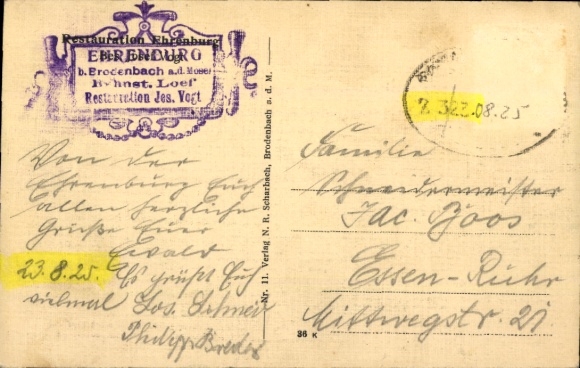 Restauration Ehrenburg
Bes. Josef Vogt
EHRENBURG
b. Brodenbach a.d. Mosel
Bahnst. Loef
Restauration Jos. Vogt
Von der
Ehrenburg Euch
allen herzliche
Grüße Euer
Ewald
23.8.25. Es grüßt Euch
vielmal Jos.
Philipp Breder
Nr. 11. Verlag N. R. Scharbach, Brodenbach a. d. M.
Z 322 08.25
Familie
Schneidermeister
Jac. Boos
Essen-Ruhr
Mittwegstr. 21
36 K